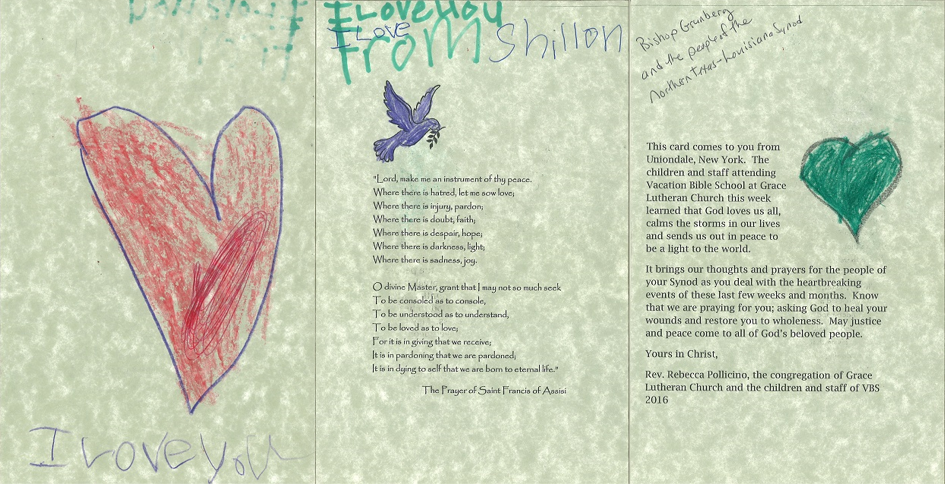 I Love you
I Love you
I Love
From Shillon
"Lord, make me an instrument of thy peace.
Where there is hatred, let me sow love;
Where there is injury, pardon;
Where there is doubt, faith;
Where there is despair, hope;
Where there is darkness, light;
Where there is sadness, joy.
O divine Master, grant that I may not so much seek
To be consoled as to console,
To be understood as to understand,
To be loved as to love;
For it is in giving that we receive;
It is in pardoning that we are pardoned;
It is in dying to self that we are born to eternal life."
The Prayer of Saint Francis of Assisi
Bishop Gronberg
and the people of the
Northern Texas-Louisiana Synod
This card comes to you from
Uniondale, New York. The
children and staff attending
Vacation Bible School at Grace
Lutheran Church this week
learned that God loves us all,
calms the storms in our lives
and sends us out in peace to
be a light to the world.
It brings our thoughts and prayers for the people of
your Synod as you deal with the heartbreaking
events of these last few weeks and months. Know
that we are praying for you; asking God to heal your
wounds and restore you to wholeness. May justice
and peace come to all of God's beloved people.
Yours in Christ,
Rev. Rebecca Pollicino, the congregation of Grace
Lutheran Church and the children and staff of VBS
2016